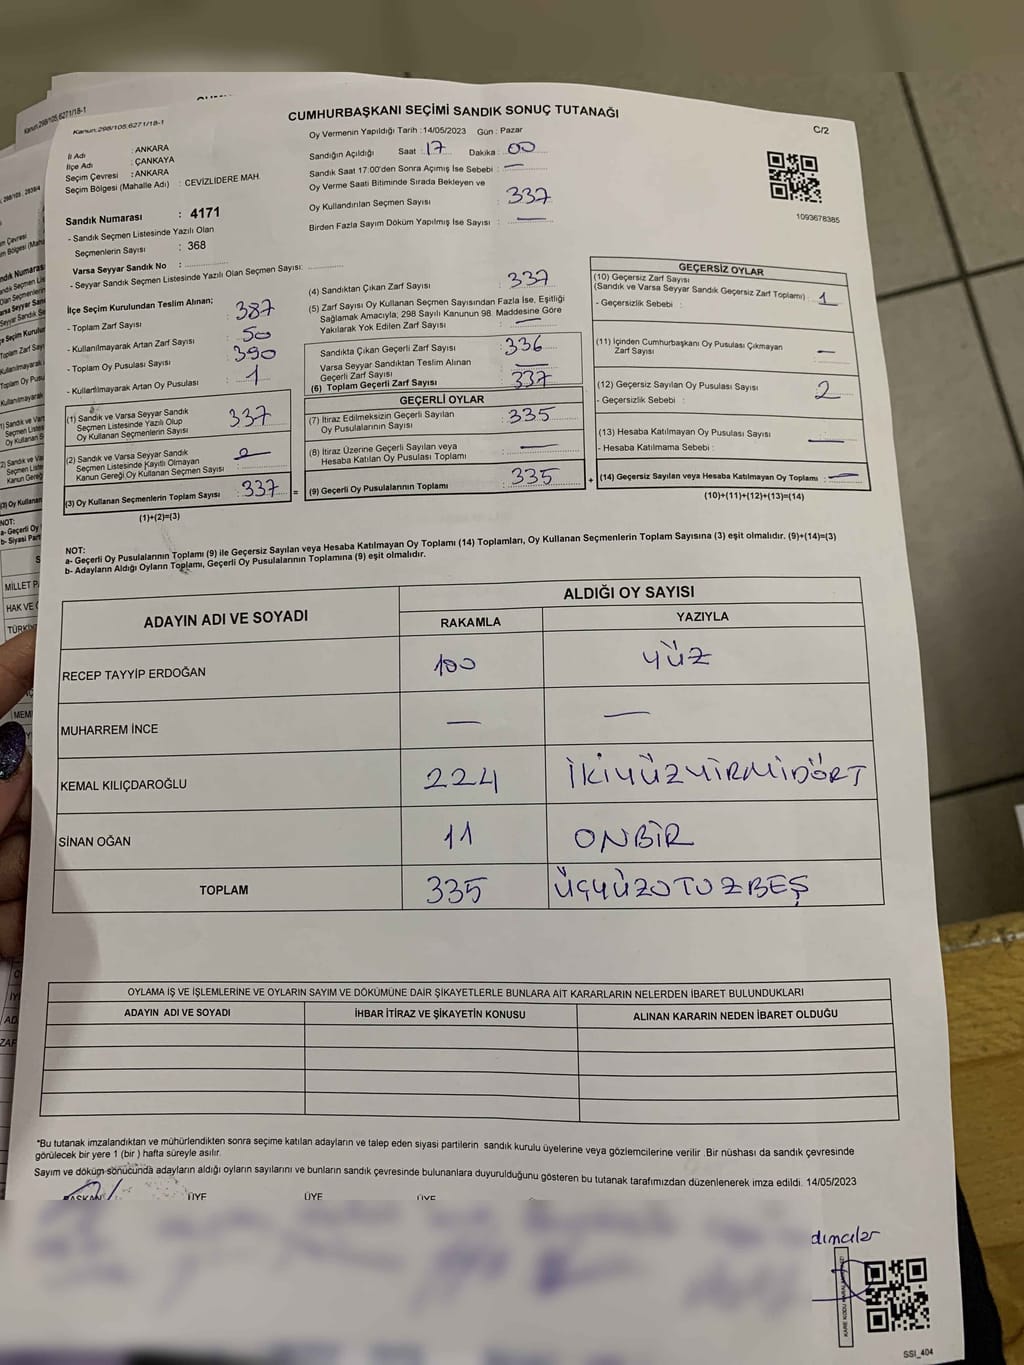 Kanun:298/105,6271/18-1
CUMHURBAŞKANI SEÇİMİ SANDIK SONUÇ TUTANAĞI
C/2
Oy Vermenin Yapıldığı Tarih :14/05/2023 Gün : Pazar
İl Adı : ANKARA
İlçe Adı : ÇANKAYA
Seçim Çevresi : ANKARA
Seçim Bölgesi (Mahalle Adı) : CEVİZLİDERE MAH.
Sandığın Açıldığı Saat : 17 Dakika : 00
Sandık Saat 17:00'den Sonra Açımış İse Sebebi : —
Oy Verme Saati Bitiminde Sırada Bekleyen ve
Oy Kullandırılan Seçmen Sayısı : 337
Birden Fazla Sayım Döküm Yapılmış İse Sayısı : —
1093678385
Sandık Numarası : 4171
- Sandık Seçmen Listesinde Yazılı Olan
Seçmenlerin Sayısı : 368
Varsa Seyyar Sandık No :
- Seyyar Sandık Seçmen Listesinde Yazılı Olan Seçmen Sayısı:
İlçe Seçim Kurulundan Teslim Alınan;
- Toplam Zarf Sayısı : 387
- Kullanılmayarak Artan Zarf Sayısı : 50
- Toplam Oy Pusulası Sayısı : 390
- Kullanılmayarak Artan Oy Pusulası : 1
(1) Sandık ve Varsa Seyyar Sandık
Seçmen Listesinde Yazılı Olup
Oy Kullanan Seçmenlerin Sayısı : 337
(2) Sandık ve Varsa Seyyar Sandık
Seçmen Listesinde Kayıtlı Olmayan
Kanun Gereği Oy Kullanan Seçmen Sayısı :
(3) Oy Kullanan Seçmenlerin Toplam Sayısı : 337 =
(1)+(2)=(3)
(4) Sandıktan Çıkan Zarf Sayısı : 337
(5) Zarf Sayısı Oy Kullanan Seçmen Sayısından Fazla İse, Eşitliği
Sağlamak Amacıyla; 298 Sayılı Kanunun 98. Maddesine Göre
Yakılarak Yok Edilen Zarf Sayısı : —
Sandıkta Çıkan Geçerli Zarf Sayısı : 336
Varsa Seyyar Sandıktan Teslim Alınan
Geçerli Zarf Sayısı : —
(6) Toplam Geçerli Zarf Sayısı : 337
GEÇERLİ OYLAR
(7) İtiraz Edilmeksizin Geçerli Sayılan
Oy Pusulalarının Sayısı : 335
(8) İtiraz Üzerine Geçerli Sayılan veya
Hesaba Katılan Oy Pusulası Toplamı : —
(9) Geçerli Oy Pusulalarının Toplamı : 335 +
GEÇERSİZ OYLAR
(10) Geçersiz Zarf Sayısı
(Sandık ve Varsa Seyyar Sandık Geçersiz Zarf Toplamı) : 1
- Geçersizlik Sebebi :
(11) İçinden Cumhurbaşkanı Oy Pusulası Çıkmayan
Zarf Sayısı : —
(12) Geçersiz Sayılan Oy Pusulası Sayısı : 2
- Geçersizlik Sebebi :
(13) Hesaba Katılmayan Oy Pusulası Sayısı : —
- Hesaba Katılmama Sebebi :
(14) Geçersiz Sayılan veya Hesaba Katılmayan Oy Toplamı : —
(10)+(11)+(12)+(13)=(14)
NOT:
a- Geçerli Oy Pusulalarının Toplamı (9) ile Geçersiz Sayılan veya Hesaba Katılmayan Oy Toplamı (14) Toplamları, Oy Kullanan Seçmenlerin Toplam Sayısına (3) eşit olmalıdır. (9)+(14)=(3)
b- Adayların Aldığı Oyların Toplamı, Geçerli Oy Pusulalarının Toplamına (9) eşit olmalıdır.
ADAYIN ADI VE SOYADI
ALDIĞI OY SAYISI
RAKAMLA YAZIYLA
RECEP TAYYİP ERDOĞAN 100 YÜZ
MUHARREM İNCE — —
KEMAL KILIÇDAROĞLU 224 İKİYÜZYİRMİDÖRT
SİNAN OĞAN 11 ONBİR
TOPLAM 335 ÜÇYÜZOTUZBEŞ
OYLAMA İŞ VE İŞLEMLERİNE VE OYLARIN SAYIM VE DÖKÜMÜNE DAİR ŞİKAYETLERLE BUNLARA AİT KARARLARIN NELERDEN İBARET BULUNDUKLARI
ADAYIN ADI VE SOYADI İHBAR İTİRAZ VE ŞİKAYETİN KONUSU ALINAN KARARIN NEDEN İBARET OLDUĞU
*Bu tutanak imzalandıktan ve mühürlendikten sonra seçime katılan adayların ve talep eden siyasi partilerin sandık kurulu üyelerine veya gözlemcilerine verilir .Bir nüshası da sandık çevresinde
görülecek bir yere 1 (bir ) hafta süreyle asılır.
Sayım ve döküm sonucunda adayların aldığı oyların sayılarını ve bunların sandık çevresinde bulunanlara duyurulduğunu gösteren bu tutanak tarafımızdan düzenlenerek imza edildi. 14/05/2023
BAŞKAN ÜYE ÜYE ÜYE
SSI_404